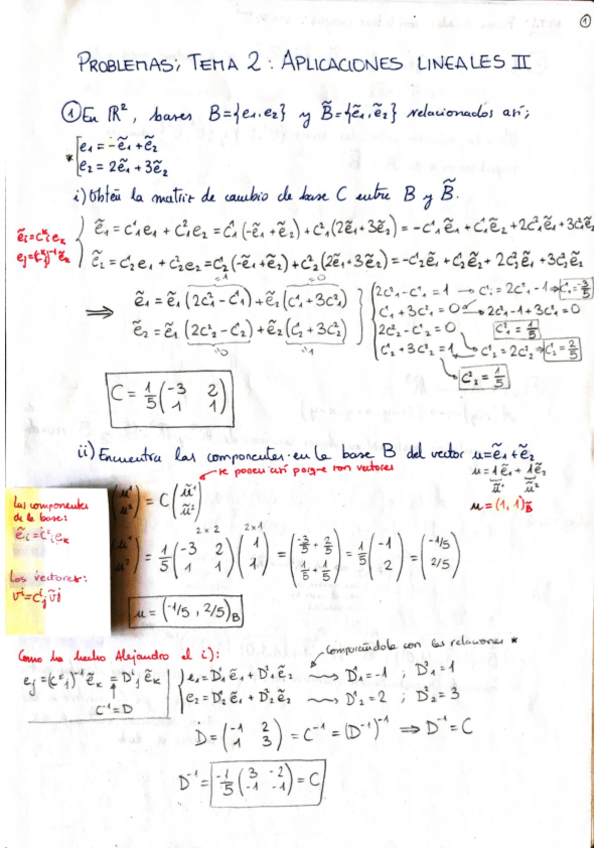 ①
PROBLEMAS; TEMA 2: APLICACIONES LINEALES II
① En ℝ², bases B={e₁,e₂} y B̃={ẽ₁,ẽ₂} relacionados así;
* [ e₁ = -ẽ₁+ẽ₂
e₂ = 2ẽ₁+3ẽ₂
i) Obtén la matriz de cambio de base C entre B y B̃.
ẽᵢ=Cᵏᵢeₖ
ẽ₁ = C¹₁e₁ + C²₁e₂ = C¹₁(-ẽ₁+ẽ₂) + C²₁(2ẽ₁+3ẽ₂) = -C¹₁ẽ₁ + C¹₁ẽ₂ + 2C²₁ẽ₁ + 3C²₁ẽ₂
ẽ₂ = C¹₂e₁ + C²₂e₂ = C¹₂(-ẽ₁+ẽ₂) + C²₂(2ẽ₁+3ẽ₂) = -C¹₂ẽ₁ + C¹₂ẽ₂ + 2C²₂ẽ₁ + 3C²₂ẽ₂
=1 =0
⇒ ẽ₁ = ẽ₁(2C²₁-C¹₁) + ẽ₂(C¹₁+3C²₁)
ẽ₂ = ẽ₁(2C²₂-C¹₂) + ẽ₂(C¹₂+3C²₂)
=0 =1
2C²₁-C¹₁ = 1 → C¹₁ = 2C²₁-1 → C¹₁ = -3/5
C¹₁+3C²₁ = 0 → 2C²₁-1+3C²₁ = 0
2C²₂-C¹₂ = 0 C²₁ = 1/5
C¹₂+3C²₂ = 1 → C¹₂ = 2C²₂ → C¹₂ = 2/5
C²₂ = 1/5
C = 1/5 (-3 2
1 1)
ii) Encuentra las componentes en la base B del vector u=ẽ₁+ẽ₂
se ponen así porque son vectores
u = 1ẽ₁ + 1ẽ₂
ũ¹ ũ²
u = (1, 1)B̃
(u¹ u²) = C (ũ¹ ũ²)
Las componentes
de la base:
ẽᵢ = Cᵏᵢeₖ
Los vectores:
vⁱ = Cⁱⱼṽʲ
2x2 2x1
(u¹ u²) = 1/5 (-3 2 1 1) (1 1) = (-3/5 + 2/5 1/5 + 1/5) = 1/5 (-1 2) = (-1/5 2/5)
u = (-1/5, 2/5)B
Como ha hecho Alejandro el i):
comparándola con las relaciones *
eⱼ = (Cᵏⱼ)⁻¹ẽₖ = Dᵏⱼẽₖ
C⁻¹ = D
e₁ = D¹₁ẽ₁ + D²₁ẽ₂ → D¹₁ = -1 ; D²₁ = 1
e₂ = D¹₂ẽ₁ + D²₂ẽ₂ → D¹₂ = 2 ; D²₂ = 3
D = (-1 2 1 3) = C⁻¹ = (D⁻¹)⁻¹ ⇒ D⁻¹ = C
D⁻¹ = -1/5 (3 -2 -1 -1) = C